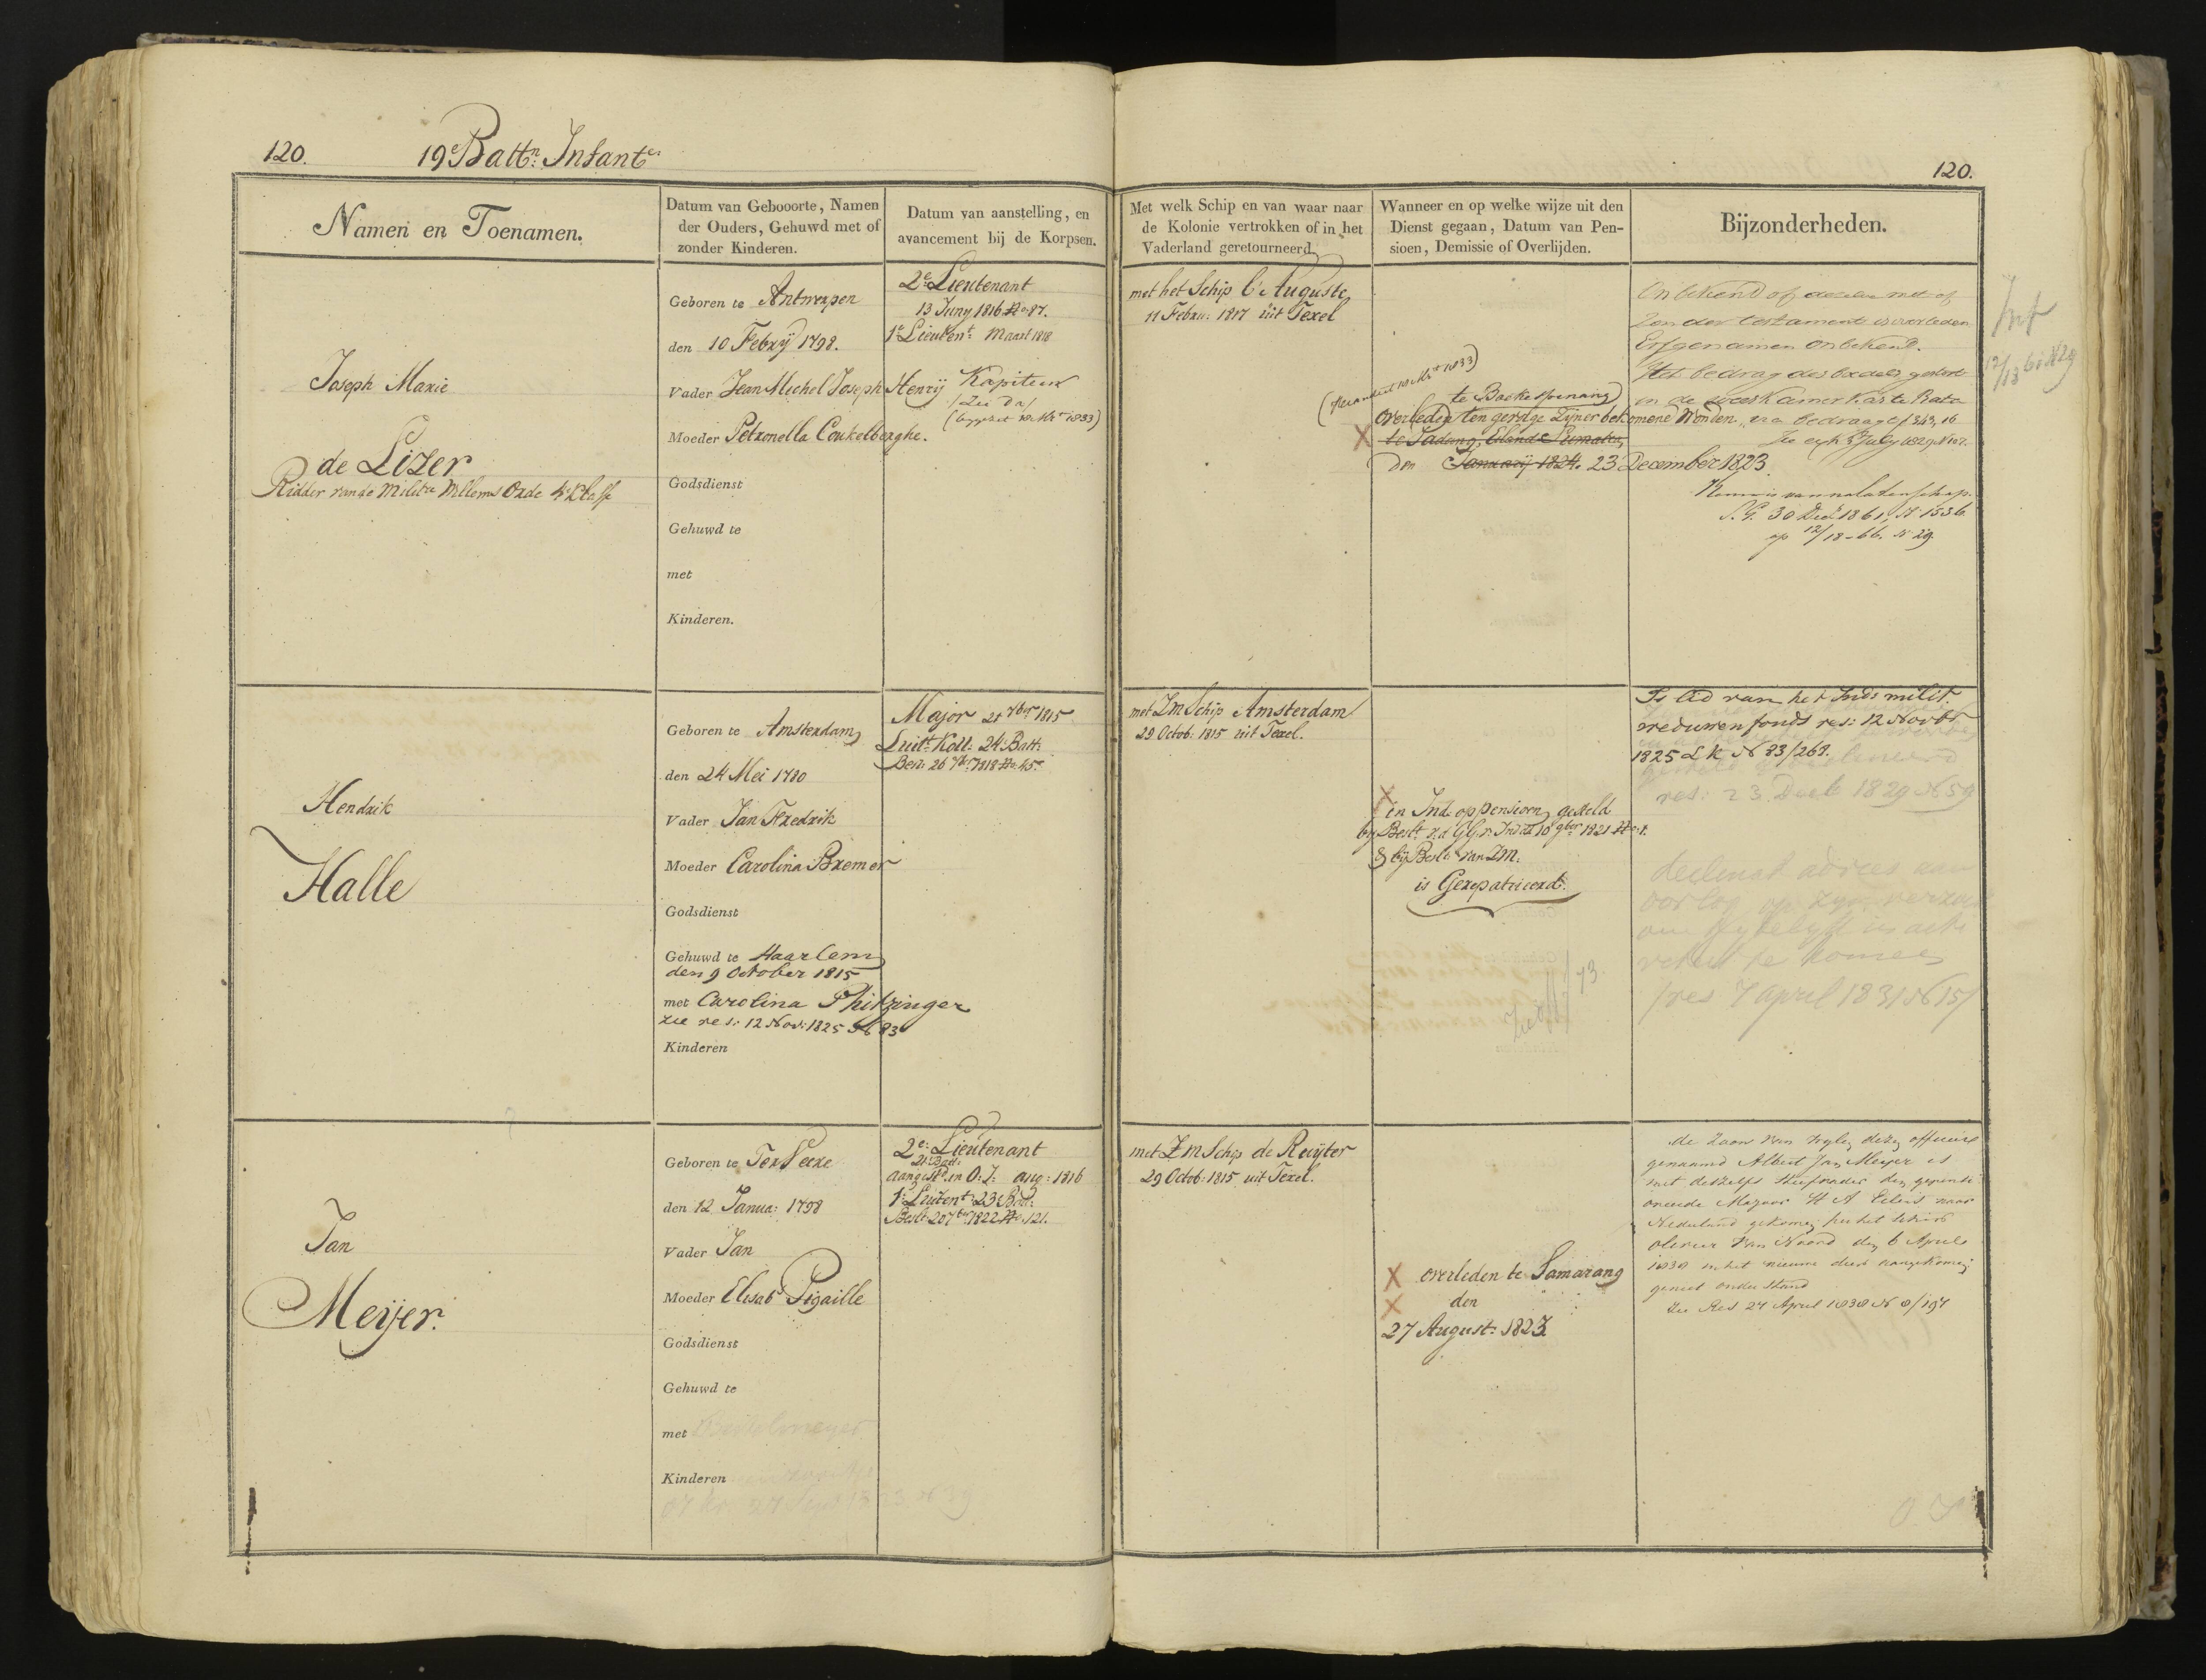 120.
19e Battn: Infante
120.
Namen en Toenamen.
Datum van Gebooorte, Namen
der Ouders, Gehuwd met of
zonder Kinderen.
Datum van aanstelling, en
avancement bij de Korpsen.
Met welk Schip en van waar naar
de Kolonie vertrokken of in het
Vaderland geretourneerd.
Wanneer en op welke wijze uit den
Dienst gegaan, Datum van Pen-
sioen, Demissie of Overlijden.
Bijzonderheden.
Joseph Marie
de Lizer
Ridder van de Milite Willems Orde 4e Klasse
Geboren te Antwerpen
den 10 Febrij 1798.
Vader Jean Michel Joseph Henrij
Moeder Petronella Coukelberghe.
Godsdienst
Gehuwd te
met
Kinderen.
2e Lieutenant
13 Juny 1816 No 87.
1e Lieutent Maart 1818
Kapitein
met het Schip l'Auguste
11 Febru: 1817 uit Texel
te Backe
overleden ten gevolge Zijner bekomene Wonden
te Padang, Eiland Sumatra,
den Januarij 1824. 23 December 1823
Onbekend of dezelve met of
Zonder testamente is overleden
Erfgenamen Onbekend.
Het bedrag des boedels gestort
in de weeskamer
bedraagt f 343,16
July 1829
Kennis van nalatenschap.
30 Decr 1861, N 1536
op 12/18-66. N 29
Hendrik
Halle
Geboren te Amsterdam
den 24 Mei 1780
Vader Jan Fredrik
Moeder Carolina Bremer
Godsdienst
Gehuwd te Haarlem
den 9 October 1815
met Carolina Phitzinger
zie res: 12 Nov: 1825 N 83
Kinderen
Major 21 7ber 1815
Luitt Koll: 24: Batt:
Besl: 26 7br 1818 No: 45.
met ZM Schip Amsterdam
29 Octob: 1815 uit Texel.
in Ind: op pensioen gesteld
by Beslt v.d. GGr. Ind dd 10 9ber 1821 No: 1.
& bij Beslt van ZM.
is Gerepatrieerd.
Is Lid van het Inds milit.
weduwen fonds res: 12 Novbr
1825 L K N 83/268.
res: 23 Decb 1829 N 59
oorlog op zyn verzoek
te komen
/res 7 april 1831 N 15/
Jan
Meijer.
Geboren te Ter Veere
den 12 Janua: 1798
Vader Jan
Moeder Elisab Pigaille
Godsdienst
Gehuwd te
met
Kinderen
2e: Lieutenant
21: Batt:
aangestd. in O: I: aug: 1816
1e: Lieutent: 23: Batt:
Beslt: 20 7ber 1822 No: 121.
met ZM Schip de Ruijter
29 Octob: 1815 uit Texel.
overleden te Samarang
den
27 August: 1823
de Zoon van wylen dezen officier
genaamd Albert Jan Meyer is
met deszelfs stiefvader den gepensi
oneerde Majoor H A Eilers naar
Nederland gekomen per het Schip
Olivier van Noord den 6 April
1838 in het nieuwe diep aangekomen
geniet onderstand
Zie Res 24 April 1838 N 8/197